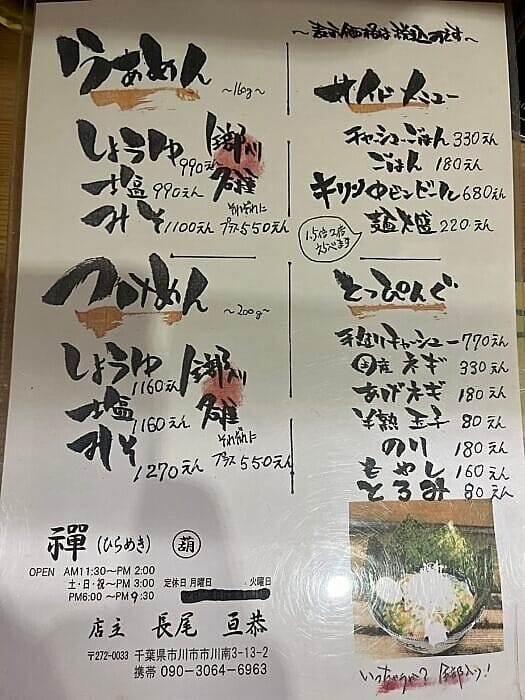 ～表示価格は税込のです～
らぁめん
～160g～
しょうゆ 990えん
塩 990えん
みそ 1100えん
全部入り
各種
それぞれに
プラス 550えん
サイドメニュー
チャーシューごはん 330えん
ごはん 180えん
キリン中ビンビール 680えん
麺大盛 220えん
1.5倍、2倍
えらべます
つけめん
～200g～
しょうゆ 1160えん
塩 1160えん
みそ 1270えん
全部入り
各種
それぞれに
プラス 550えん
とっぴんぐ
手造りチャーシュー 770えん
国産ネギ 330えん
あげネギ 180えん
半熟玉子 80えん
のり 180えん
もやし 160えん
とろみ 80えん
禪 (ひらめき) 葫
OPEN AM11:30～PM 2:00
土・日・祝～PM 3:00
PM6:00 ～PM 9:30
定休日 月曜日 火曜日
店主 長尾 亘恭
〒272-0033 千葉県市川市市川南3-13-2
携帯 090-3064-6963
いっちゃう? 全部入り!